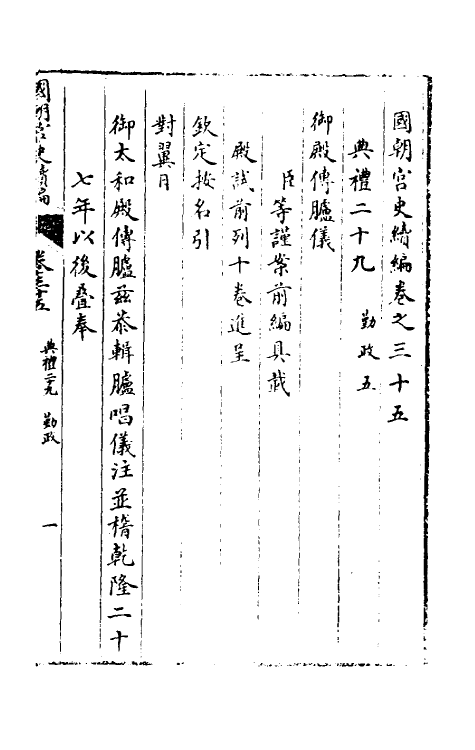 國朝宮史續編卷之三十五
典禮二十九　勤政五
御殿傳臚儀
臣等謹案前編具載
殿試前列十卷進呈
欽定按名引
對翼日
御太和殿傳臚茲恭輯臚唱儀注並稽乾隆二十
七年以後疊奉
國朝宮史續編　卷三十五　典禮二十九　勤政　一